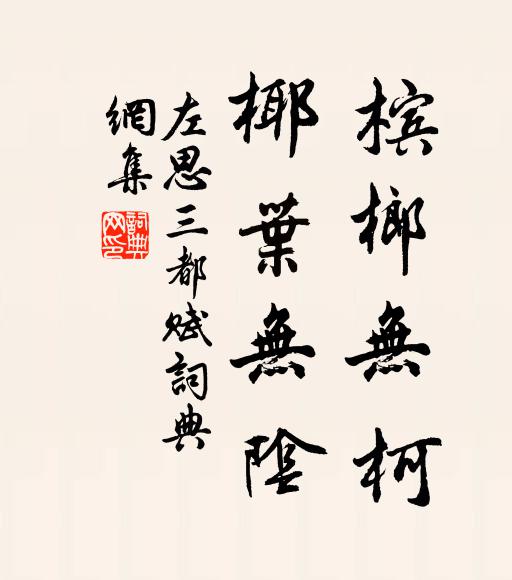 槟榔無柯
椰葉無陰
左思三都赋詞典
網集
詞典网印